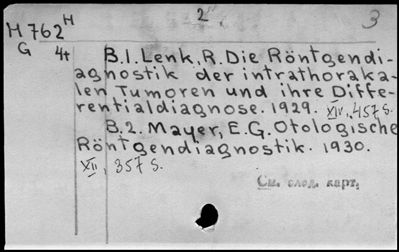 H 762 H 2 3
G 4t
B.1. Lenk, R. Die Röntgendi-
agnostik der intrathoraka-
len Tumoren und ihre Diffe-
rentialdiagnose. 1929. XIV, 457 S.
B.2. Mayer, E.G. Otologische
Röntgendiagnostik. 1930.
XII, 357 S.
См. след. карт.